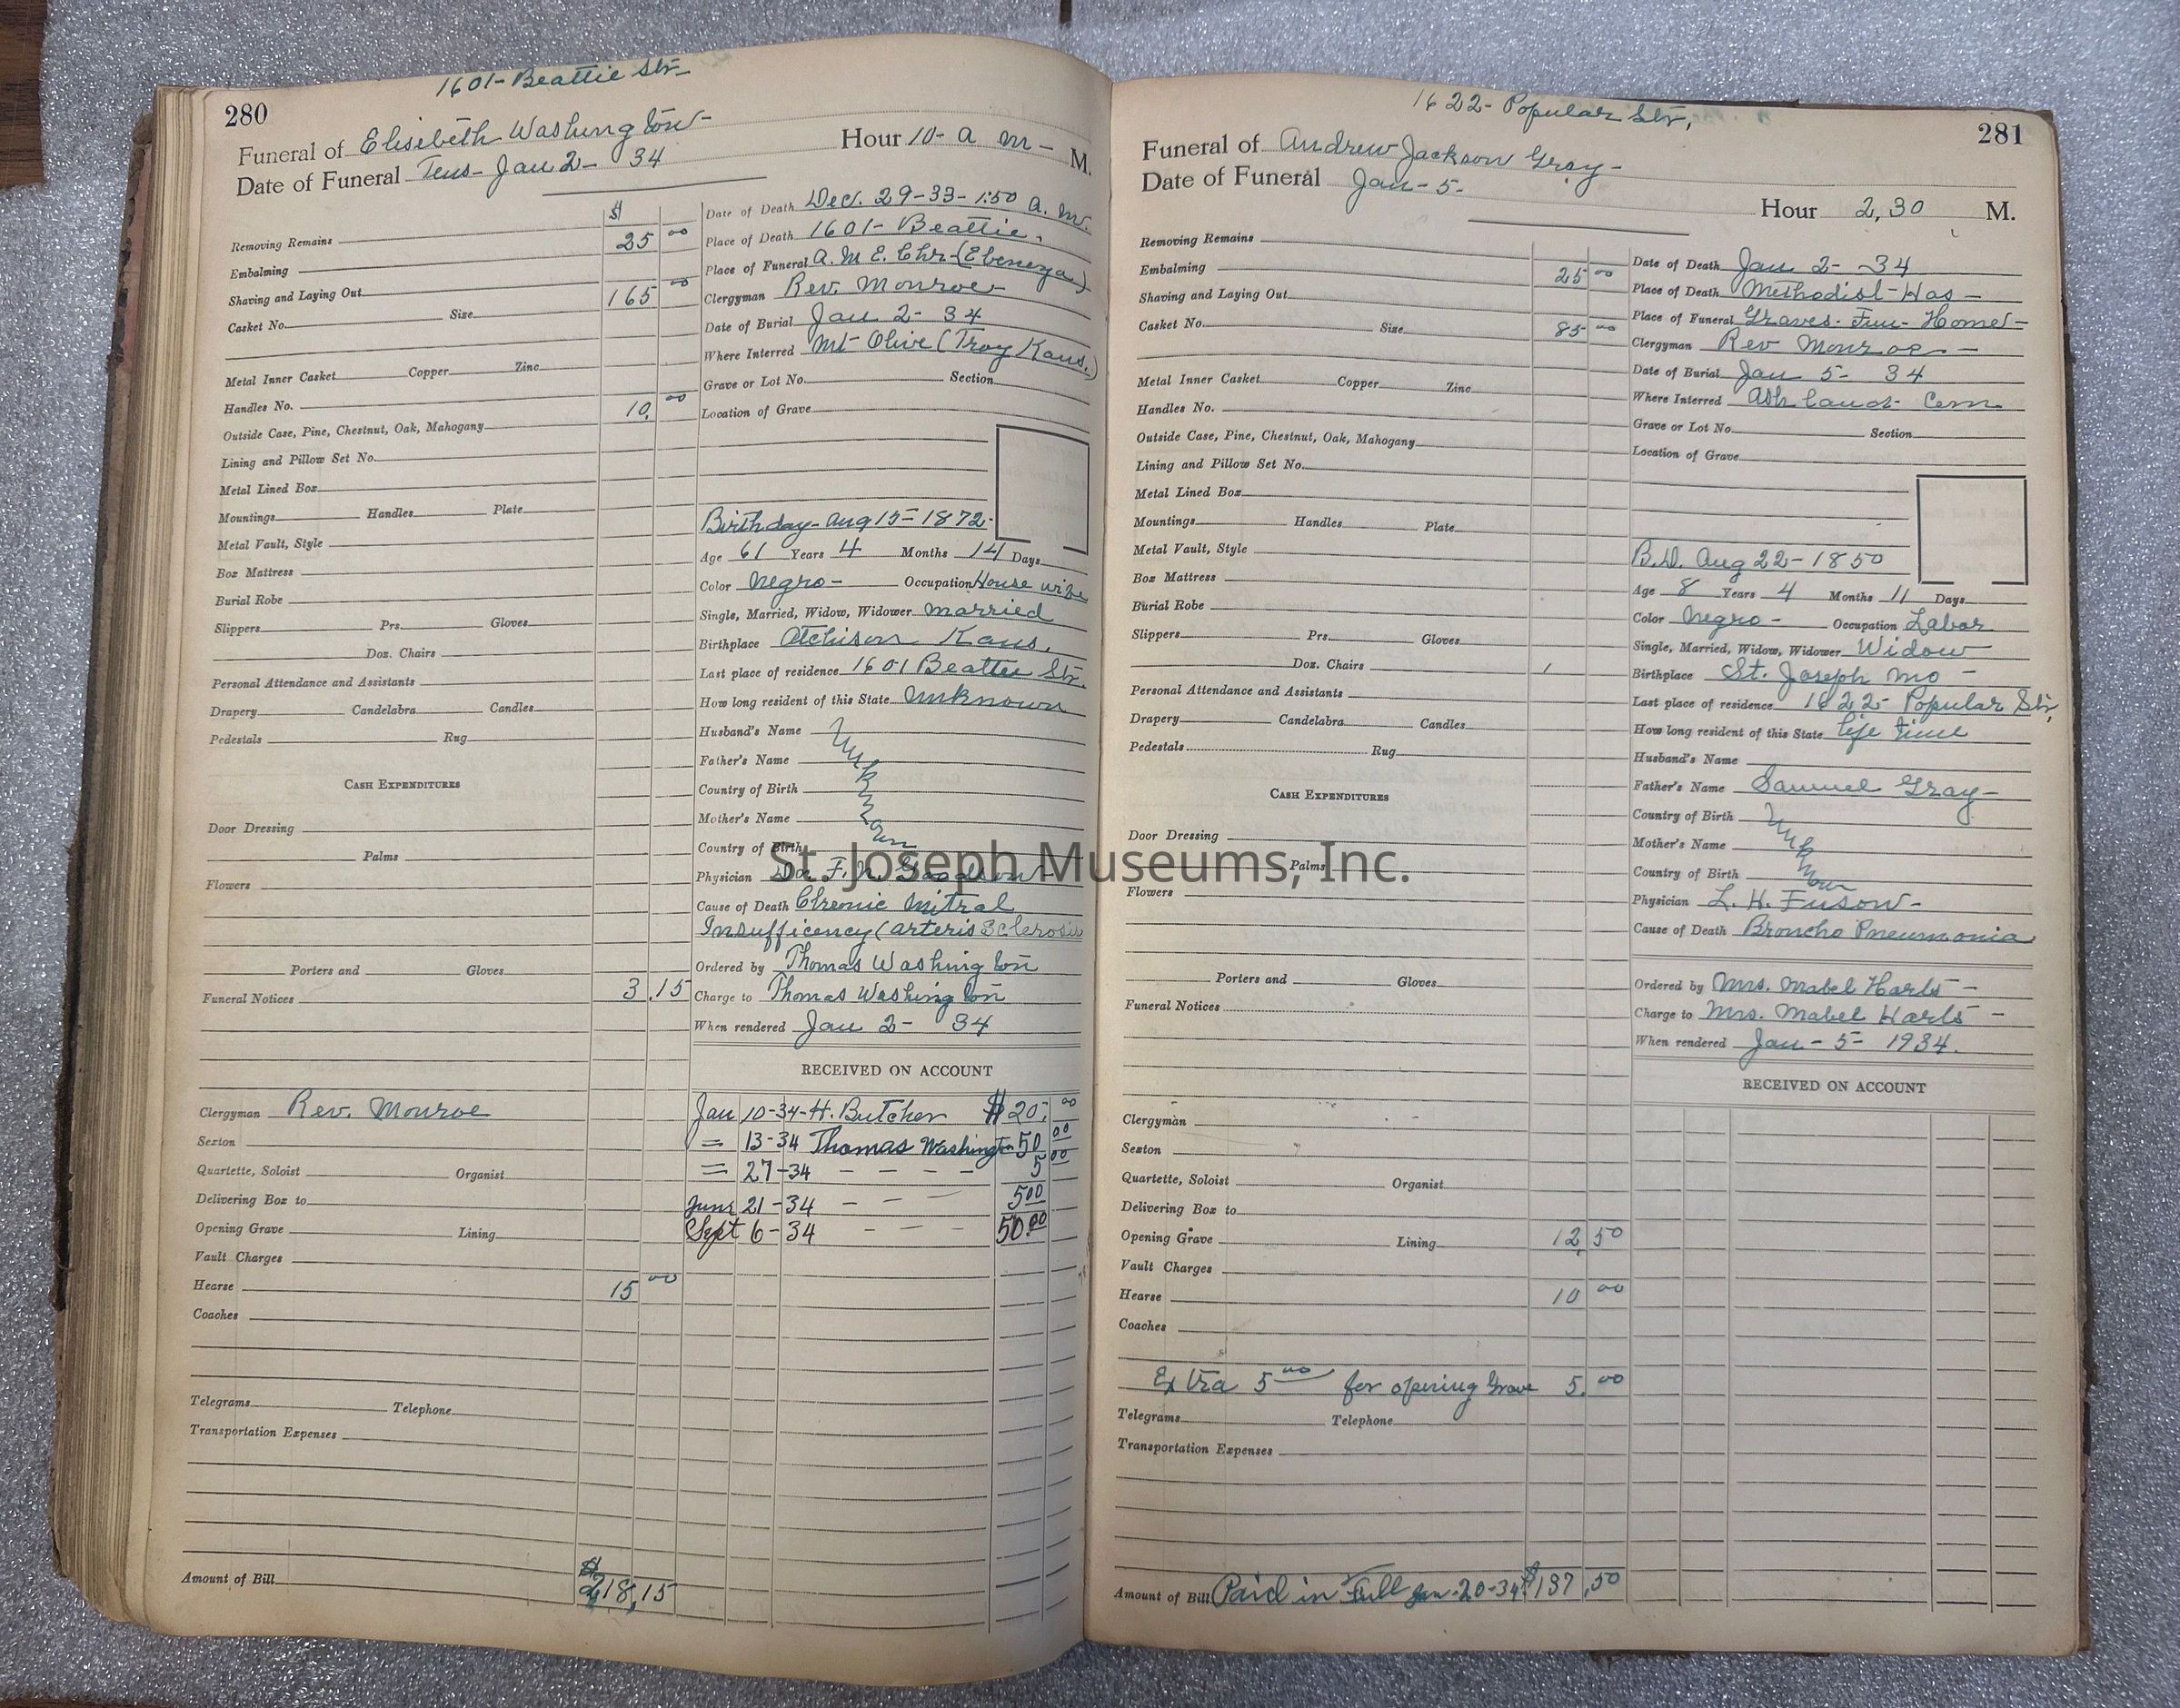 1601- Beattie Str
280
Funeral of Elisebeth Washington-
Hour 10- a m- M.
Date of Funeral Teus- Jan 2- 34
$
Removing Remains 25 00
Embalming
Shaving and Laying Out 165 00
Casket No. Size
Metal Inner Casket Copper Zinc
Handles No. 10, 00
Outside Case, Pine, Chestnut, Oak, Mahogany
Lining and Pillow Set No.
Metal Lined Box
Mountings Handles Plate
Metal Vault, Style
Box Mattress
Burial Robe
Slippers Prs. Gloves
Doz. Chairs
Personal Attendance and Assistants
Drapery Candelabra Candles
Pedestals Rug
CASH EXPENDITURES
Door Dressing
Palms
Flowers
Porters and Gloves
Funeral Notices 3.15
Clergyman Rev. Monroe
Sexton
Quartette, Soloist Organist
Delivering Box to
Opening Grave Lining
Vault Charges
Hearse 15 00
Coaches
Telegrams Telephone
Transportation Expenses
Amount of Bill $218,15
Date of Death Dec. 29-33- 1:50 a. m.
Place of Death 1601- Beattie.
Place of Funeral A. M. E. Chr-(Ebeneza)
Clergyman Rev. Monroe
Date of Burial Jan 2- 34
Where Interred Mt- Olive (Troy Kans.)
Grave or Lot No. Section
Location of Grave
Birthday- Aug 15= 1872-
Age 61 Years 4 Months 14 Days
Color Negro- Occupation House wife
Single, Married, Widow, Widower married
Birthplace Atchison Kans.
Last place of residence 1601 Beattie Str.
How long resident of this State Unknown
Husband's Name Unknown
Father's Name
Country of Birth
Mother's Name
Country of Birth
Physician Dr. F.
Cause of Death Chronic Mitral
Insufficency (arteris Sclerosis
Ordered by Thomas Washington
Charge to Thomas Washington
When rendered Jan 2- 34
RECEIVED ON ACCOUNT
Jan 10-34-H. Butcher $20. 00
= 13-34 Thomas Washington 50 00
= 27-34 - - - - 5 00
June 21-34 - - - 5 00
Sept 6-34 - - - 50.00
1622- Popular Str,
281
Funeral of Andrew Jackson Gray-
Date of Funeral Jan- 5-
Hour 2,30 M.
Removing Remains
Embalming 25 00
Shaving and Laying Out
Casket No. Size 85 00
Metal Inner Casket Copper Zinc
Handles No.
Outside Case, Pine, Chestnut, Oak, Mahogany
Lining and Pillow Set No.
Metal Lined Box
Mountings Handles Plate
Metal Vault, Style
Box Mattress
Burial Robe
Slippers Prs. Gloves
Doz. Chairs
Personal Attendance and Assistants
Drapery Candelabra Candles
Pedestals Rug
CASH EXPENDITURES
Door Dressing
Palms
Flowers
Porters and Gloves
Funeral Notices
Clergyman
Sexton
Quartette, Soloist Organist
Delivering Box to
Opening Grave Lining 12,50
Vault Charges
Hearse 10 00
Coaches
Extra 5 00 for opening Grave 5. 00
Telegrams Telephone
Transportation Expenses
Amount of Bill Paid in Full Jan-20-34 $137,50
Date of Death Jan 2- -34
Place of Death Methodist- Hos-
Place of Funeral Graves. Fun- Home-
Clergyman Rev Monroe-
Date of Burial Jan 5- 34
Where Interred Ashland- Cem
Grave or Lot No. Section
Location of Grave
B.D. Aug 22-1850
Age 8 Years 4 Months 11 Days
Color Negro- Occupation Labor
Single, Married, Widow, Widower Widow
Birthplace St. Joseph Mo-
Last place of residence 1622- Popular Str,
How long resident of this State life time
Husband's Name
Father's Name Samuel Gray-
Country of Birth
Mother's Name
Country of Birth
Physician L. H. Fuson-
Cause of Death Broncho Pneumonia
Ordered by Mrs. Mabel Harts-
Charge to Mrs. Mabel Harts-
When rendered Jan- 5= 1934.
RECEIVED ON ACCOUNT
St. Joseph Museums, Inc.